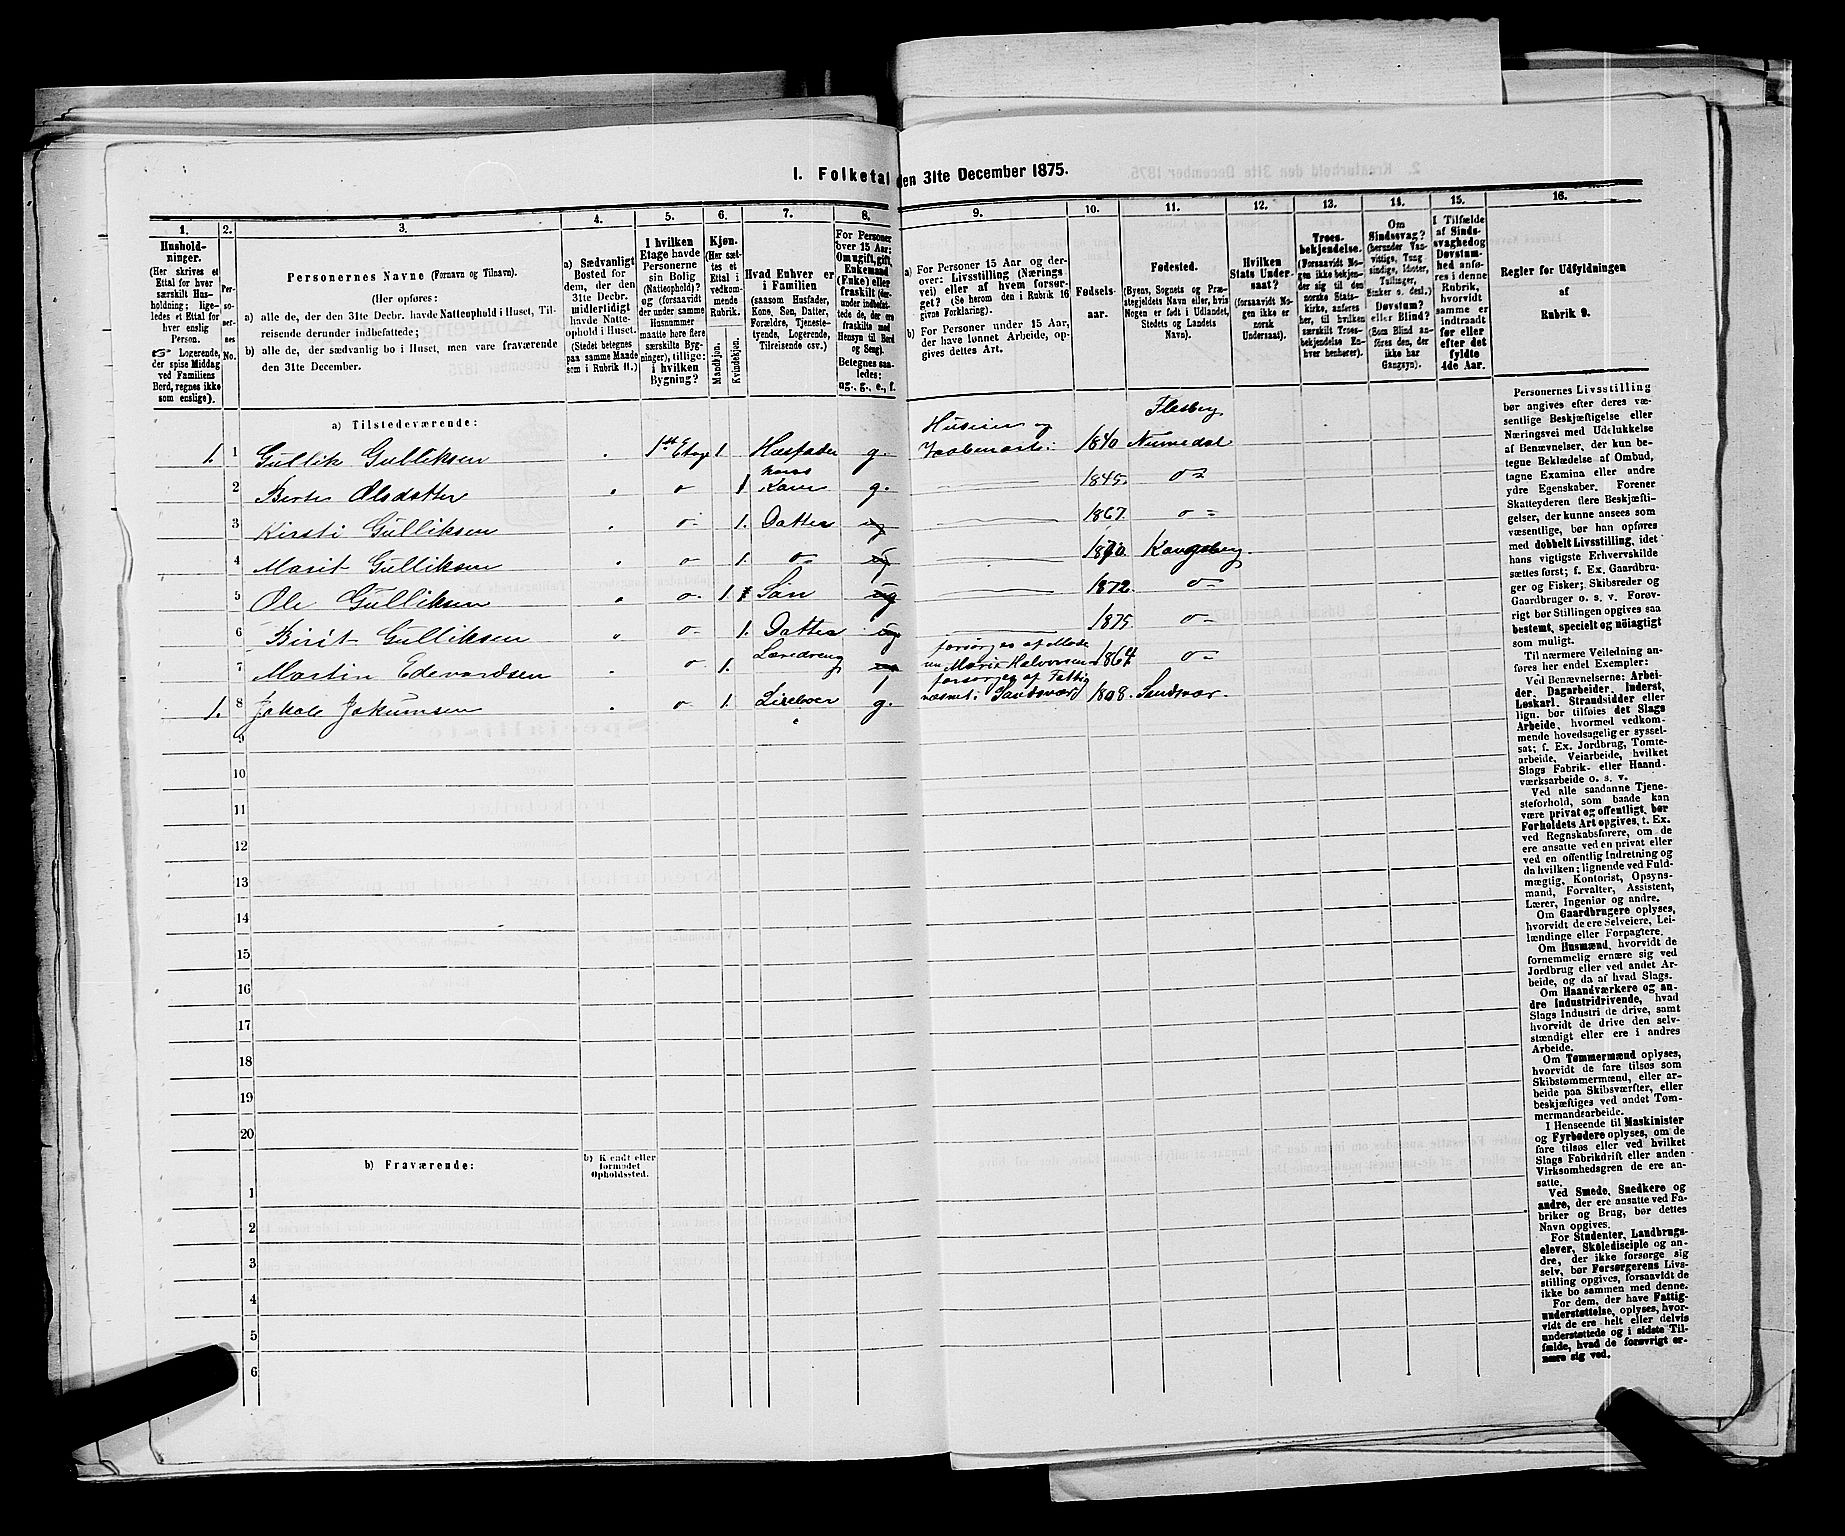 I. Folketal den 31te December 1875.
1.
Hushold-
ninger.
(Her skrives et
Ettal for hver
særskilt Hus-
holdning; lige-
ledes et Ettal for
hver enslig
Person.
☞ Logerende,
der spise Middag
ved Familiens
Bord, regnes ikke
som enslige).
2.
Per-
so-
ner-
nes
No.
3.
Personernes Navne (Fornavn og Tilnavn).
(Her opføres:
a) alle de, der den 31te Decbr. havde Natteophold i Huset, Til-
reisende derunder indbefattede;
b) alle de, der sædvanlig bo i Huset, men vare fraværende
den 31te December.
4.
a) Sædvanligt
Bosted for
dem, der den
31te Decbr.
midlertidigt
havde Natte-
ophold i Huset.
(Stedet betegnes
paa samme Maade
som i Rubrik 11.)
5.
I hvilken
Etage havde
Personerne
sin Bolig
(Natteophold)?
og (forsaavidt
der under samme
Husnummer
maatte høre flere
særskilte Byg-
ninger), tillige:
i hvilken
Bygning?
6.
Kjøn.
(Her sæt-
tes et
Ettal i
vedkom-
mende
Rubrik.
Mandkjøn.
Kvindekjøn.
7.
Hvad Enhver er
i Familien
(saasom Husfader,
Kone, Søn, Datter,
Forældre, Tjeneste-
tyende, Logerende,
Tilreisende osv.)
8.
For Personer
over 15 Aar:
Om ugift, gift,
Enkemand
(Enke) eller
fraskilt (der-
under indbefat-
tede de, der ere
fraskilte med
Hensyn til Bord
og Seng).
Betegnes saa-
ledes:
ug., g., e., f.
9.
a) For Personer 15 Aar og der-
over: Livsstilling (Nærings
vei) eller af hvem forsør-
get? (Se herom den i Rubrik 16
givne Forklaring).
b) For Personer under 15 Aar,
der have lønnet Arbeide, op-
gives dettes Art.
10.
Fødsels-
aar.
11.
Fødested.
(Byens, Sognets og Præ-
stegjeldets Navn eller, hvis
Nogen er født i Udlandet,
Stedets og Landets
Navn).
12.
Hvilken
Stats Under-
saat?
(forsaavidt No-
gen ikke er
norsk
Undersaat).
13.
Troes-
bekjendelse.
(Forsaavidt No-
gen ikke bekjen-
der sig til den
norske Stats-
kirke, anføres
her, til hvilken
særskilt Troes-
bekjendelse En-
hver henhører).
14.
Om
Sindssvag?
(herunder Van-
vittige, Tung
sindige, Idioter,
Tullinger,
Sinker o. desl.)
Døvstum?
eller Blind?
(Som Blind an-
føres den, der
ikke har
Gangsyn).
15.
I Tilfælde
af Sinds-
svaghed og
Døvstum-
hed anfø-
res i denne
Rubrik,
hvorvidt
samme er
indtraadt
før eller
efter det
fyldte
4de Aar.
16.
Regler for Udfyldningen
af
Rubrik 9.
a) Tilstedeværende:
1. 1 Gullik Gulliksen 1ste Etage 1 Husfader g. Huseier og Vaabenarb: 1840 Flesberg Numedal
2 Berte Olsdatter o 1 hans Kone g. 1845. o
3 Kirsti Gulliksen o 1. Datter ug 1867. o
4 Marit Gulliksen o 1. o ug 1870. Kongsberg
5 Ole Gulliksen o 1. Søn ug 1872. o
6 Birit Gulliksen o 1. Datter ug 1875. o
7 Martin Edevardsen o 1. Læredreng forsørges af Mode
ren Marie Halvorsen 1864 o
1. 8 Jakob Jokumsen o 1. g. forsørges af Fattig
væsnet i Sandsværd 1808. Sandsvær
9
10
11
12
13
14
15
16
17
18
19
20
b) Fraværende:
b) Kjendt eller
formodet
Opholdssted.
1
2
3
4
5
6
Personernes Livsstilling
bør angives efter deres væ-
sentlige Beskjæftigelse eller
Næringsvei med Udelukkelse
af Benævnelser, der kun be-
tegne Beklædelse af Ombud,
tagne Examina eller andre
ydre Egenskaber. Forener
Skatteyderen flere Beskjæfti-
gelser, der kunne ansees som
væsentlige, bør han opføres
med dobbelt Livsstilling, idet
hans vigtigste Erhvervskilde
sættes først; f. Ex. Gaardbru-
ger og Fisker; Skibsreder og
Gaardbruger o. s. v. Forøv-
rigt bør Stillingen opgives saa
bestemt, specielt og nøiagtigt
som muligt.
Til nærmere Veiledning an-
føres her endel Exempler:
Ved Benævnelserne: Arbei-
der, Dagarbeider, Inderst,
Løskarl, Strandsidder eller
lign. bør tilføies det Slags
Arbeide, hvormed vedkom-
mende hovedsagelig er syssel-
sat; f. Ex. Jordbrug, Tomte-
arbeide, Veiarbeide, hvilket
Slags Fabrik- eller Haand-
værksarbeide o. s. v.
Ved alle saadanne Tjene-
steforhold, som baade kan
være privat og offentligt, bør
Forholdets Art opgives, t. Ex.
ved Regnskabsførere, om de
ere ansatte ved en privat eller
ved en offentlig Indretning og
da hvilken; lignende ved Fuld-
mægtig, Kontorist, Opsyns-
mand, Forvalter, Assistent,
Lærer, Ingeniør og andre.
Om Gaardbrugere oplyses,
hvorvidt de ere Selveiere, Lei-
lændinge eller Forpagtere.
Om Husmænd, hvorvidt de
fornemmelig ernære sig ved
Jordbrug eller ved andet Ar-
beide, og da af hvad Slags.
Om Haandværkere og an-
dre Industridrivende, hvad
Slags Industri de drive, samt
hvorvidt de drive den selv-
stændigt eller ere i andres
Arbeide.
Om Tømmermænd oplyses,
hvorvidt de fare tilsøs som
Skibstømmermænd, eller ar-
beide paa Skibsværfter, eller
beskjæftiges ved andet Tøm-
mermandsarbeide.
I Henseende til Maskinister
og Fyrbødere oplyses, om de
fare tilsøs eller ved hvilket
Slags Fabrikdrift eller anden
Virksomhedsgren de ere an-
satte.
Ved Smede, Snedkere og
andre, der ere ansatte ved Fa-
briker og Brug, bør dettes
Navn opgives.
For Studenter, Landbrugs-
elever, Skoledisciple og an-
dre, der ikke forsørge sig
selv, bør Forsørgerens Livs-
stilling opgives, forsaavidt de
ikke bo sammen med denne.
For dem, der have Fattig-
understøttelse, oplyses, hvor-
vidt de ere helt eller delvis
understøttede og i sidste Til-
fælde, hvad de forøvrigt er-
nære sig ved.